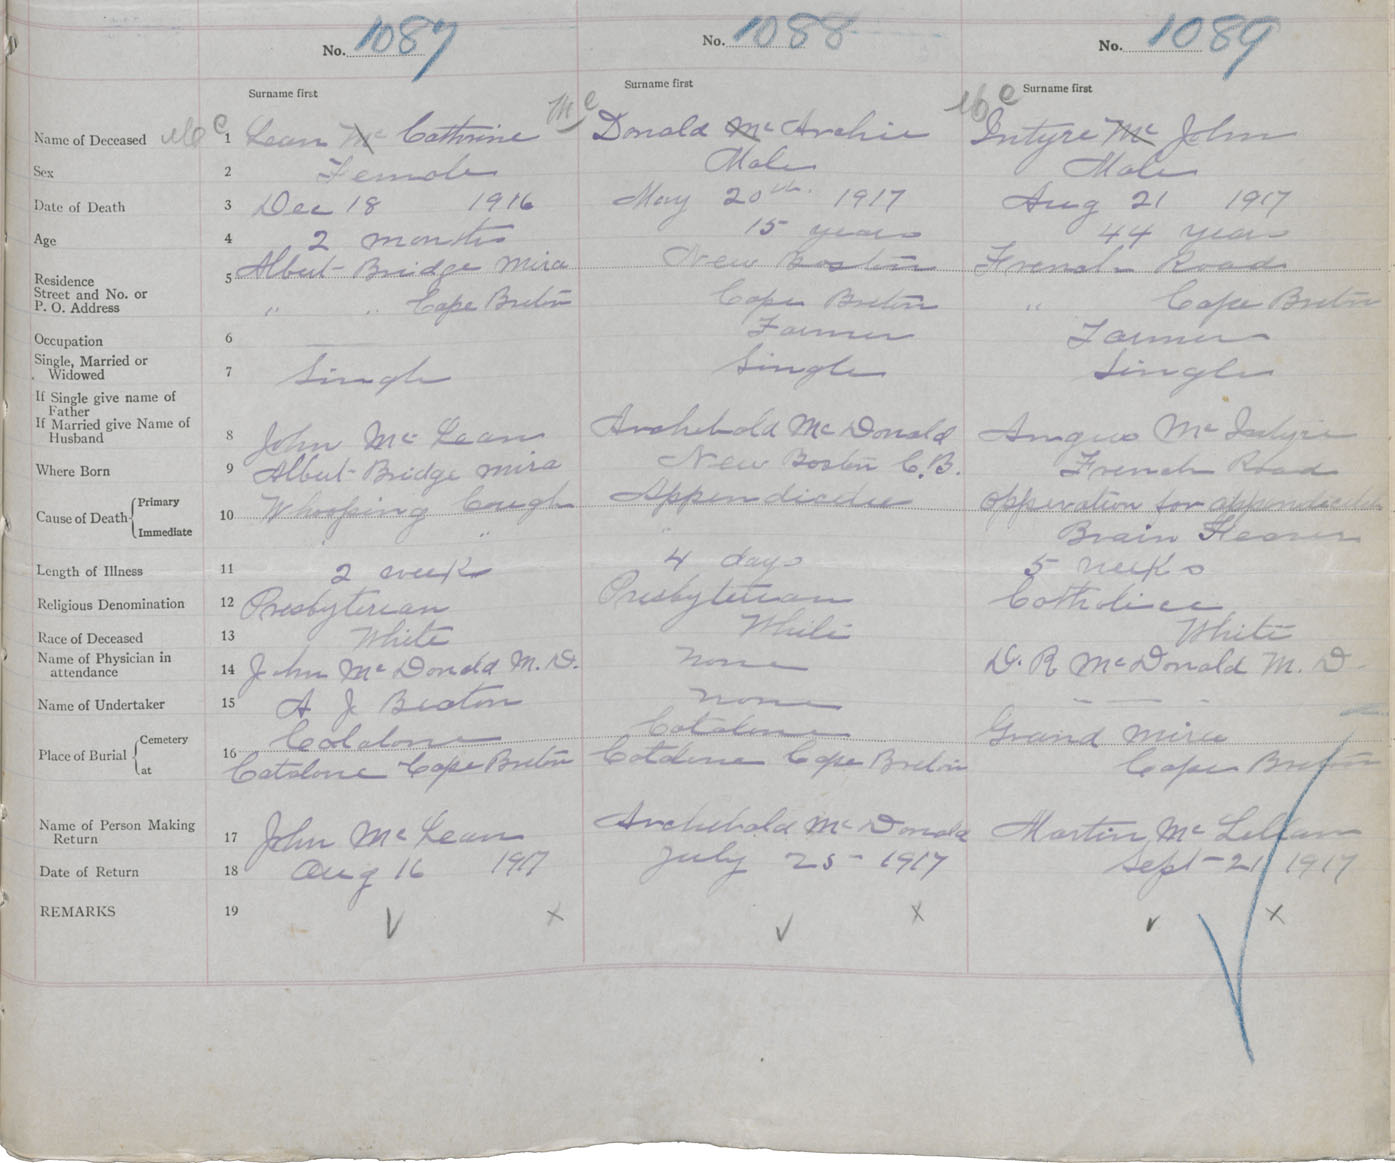 No. 1087 No. 1088 No. 1089
Surname first Surname first Surname first
Name of Deceased Mc 1 Lean Mc Cathrine Mc Donald Mc Archie Mc Intyre Mc John
Sex 2 Female Male Male
Date of Death 3 Dec 18 1916 May 20th 1917 Aug 21 1917
Age 4 2 months 15 years 44 year
Residence Street and No. or P. O. Address 5 Albert-Bridge Mira New Boston French Road
" " Cape Breton Cape Breton " Cape Breton
Occupation 6 Farmer Farmer
Single, Married or Widowed 7 Singl Single Single
If Single give name of Father
If Married give Name of Husband 8 John Mc Lean Archebald Mc Donald Angus Mc Intyre
Where Born 9 Albert-Bridge Mira New Boston C.B. French Road
Cause of Death { Primary 10 Whooping Cough Appendicitie opperation for appendicitis
Immediate " " Brain Feaver
Length of Illness 11 2 week 4 days 5 weeks
Religious Denomination 12 Presbyterian Presbyterian
Race of Deceased 13 White White White
Name of Physician in attendance 14 John Mc Donald M. D. none D. R Mc Donald M. D-
Name of Undertaker 15 A J none — — —
Place of Burial { Cemetery 16 Catalone Catalone Grand Mira
at Catalone Cape Breton Catalone Cape Breton Cape Breton
Name of Person Making Return 17 John Mc Lean Archebald Mc Donald Martin Mc
Date of Return 18 Aug 16 1917 July 25- 1917 Sept-21 1917
REMARKS 19 ✓ x ✓ x ✓ x